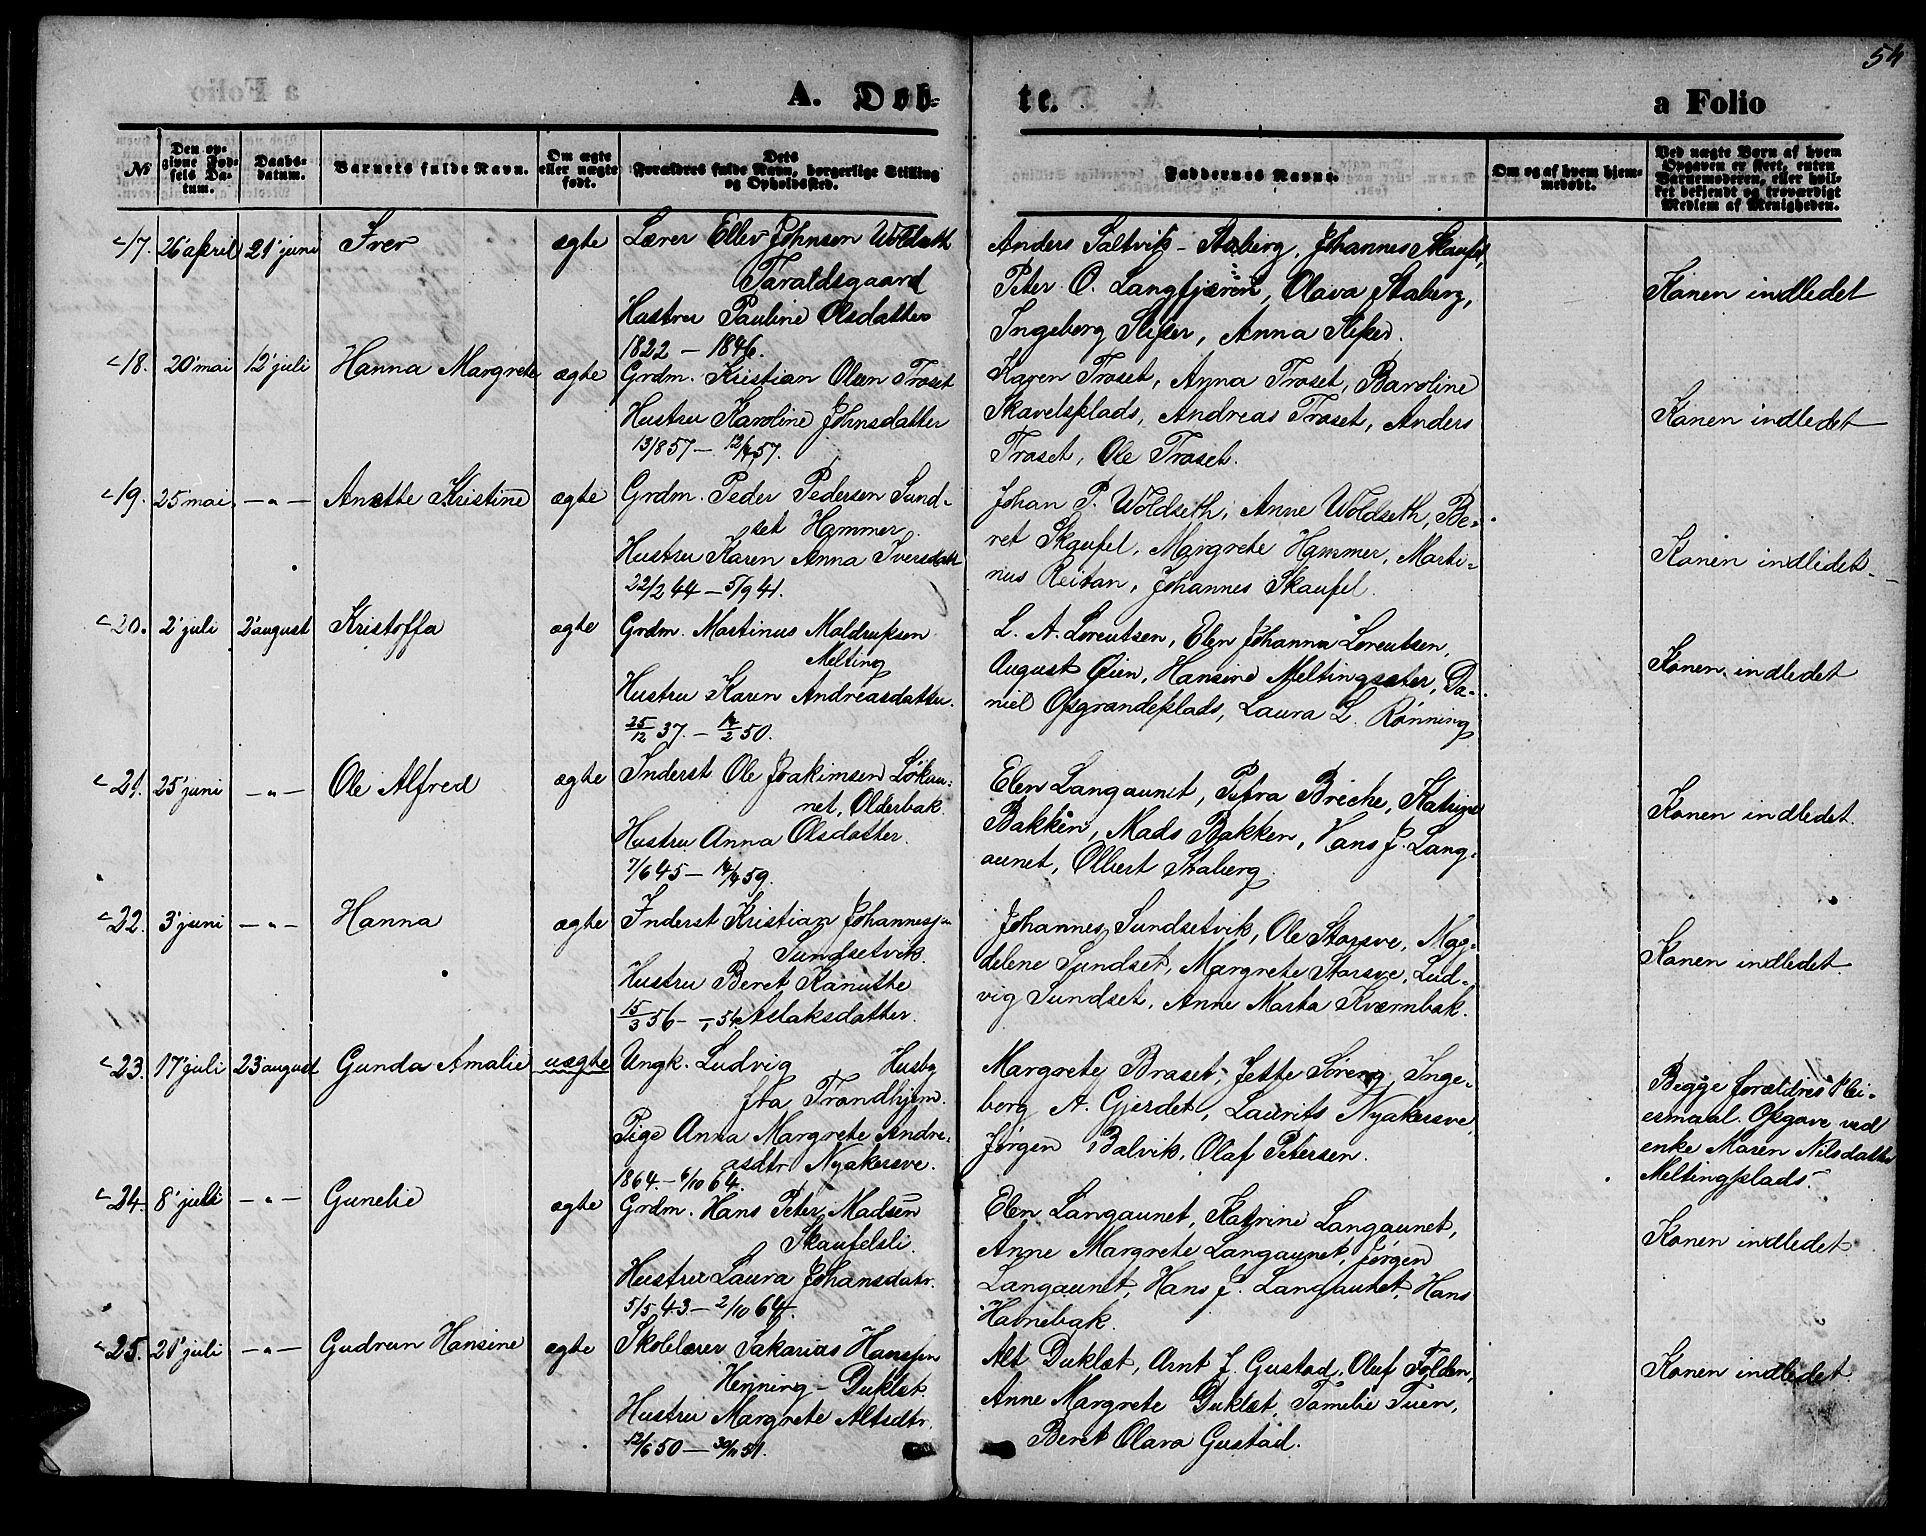 54
A. Döb-
te.
a Folio
№
Den op-
givne Fød-
sels Da-
tum.
Daabs-
datum.
Barnets fulde Navn.
Om ægte
eller uægte
født.
Dets
Forældres fulde Navn, borgerlige Stilling
og Opholdssted.
Faddernes Navne.
Om og af hvem hjem-
medøbt.
Ved uægte Børn af hvem
Opgaven er skeet, enten
Barnemoderen, eller hvil-
ket bekjendt og troværdigt
Medlem af Menigheden.
17. 26' april 21' juni Iver ægte
Lærer Ellev Johnsen Woldseth
Taraldsgaard
Hustru Pauline Olsdatter
1822 – 1846.
Anders Saltvik - Staberg, Johannes Skaufel,
Peter O. Langfjæren, Olava Staberg,
Ingeborg Sliper, Anna Sliper.
Konen indledet
18. 20' mai 12' juli Hanna Margrete ægte
Grdm. Kristian Olsen Troset
Hustru Karoline Johnsdatter
13/8 57 – 12/4 57.
Karen Troset, Anna Troset, Baroline
Skavelsplads, Andreas Troset, Anders
Troset, Ole Troset.
Konen indledet
19. 25' mai – " – Anethe Kristine ægte
Grdm. Peder Pedersen Sund-
set Hammer
Hustru Karen Anna Iversdatt
22/2 44 – 5/9 41.
Johan P. Woldseth, Anne Woldseth, Be-
ret Skaufel, Margrete Hammer, Marti-
nus Reitan, Johannes Skaufel.
Konen indledet
20. 2' juli 2' august Kristoffa ægte
Grdm. Martinus Maldruksen
Melting
Hustru Karen Andreasdatter.
25/12 37. – 14/2 50.
L. A. Lorentsen, Elen Johanna Lorentsen,
August Øien, Hansine Meltingsæter, Da-
niel Opgrandeplads, Laura L. Rønning
Konen indledet
21. 25' juni – " – Ole Alfred ægte
Inderst Ole Joakimsen Løkau-
net, Olderbak.
Hustru Anna Olsdatter.
7/6 45 – 14/4 59.
Elen Langaunet, Petra Breche, Katrine
Bakken, Mads Bakken, Hans J. Lang-
aunet, Olbert Staberg
Konen indledet.
22. 3' juni – " – Hanna ægte
Inderst Kristian Johannesen
Sundsetvik.
Hustru Beret Kanuthe
15/3 56 – –/1 54 Aslaksdatter.
Johannes Sundsetvik, Ole Storsve, Mag-
delene Sundset, Margrete Storsve, Lud-
vig Sundset, Anne Marta Kværnbak.
Konen indledet
23. 17' juli 23' august Gunda Amalie uægte
Ungk. Ludvig Husby
fra Trondhjem.
Pige Anna Margrete Andre-
asdtr Nyakersve.
1864. – 6/10 64.
Margrete Braset, Jette Søreng, Inge-
borg A. Gjerdet, Laurits Nyakersve,
Jørgen Balvik, Olaf Petersen.
Begge forældres 1' lei-
ermaal. Opgave ved
enke Maren Nilsdatter
Meltingplads.
24. 8' juli – " – Gunelie ægte
Grdm. Hans Peter Madsen
Skaufelsli.
Hustru Laura Johansdatr.
5/5 43 – 2/10 64.
Elen Langaunet, Katrine Langaunet,
Anne Margrete Langaunet, Jørgen
Langaunet, Hans J. Langaunet, Hans
Havnebak.
Konen indledet
25. 21' juli – " – Gudrun Hansine ægte
Skolelærer Sakarias Hanssen
Henning - Duklæt
Hustru Margrete Altsdtr.
12/6 50 – 30/11 51.
Alt Duklæt, Arnt J. Gustad, Oluf Folden,
Anne Margrete Duklæt, Tomelie Tuen,
Beret Olava Gustad.
Konen indledet